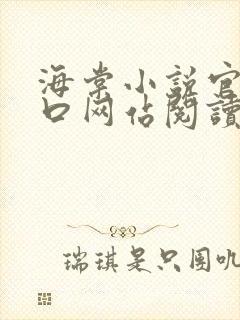 海棠小説官
口网佔閱讀
瑞琪是只圆叽